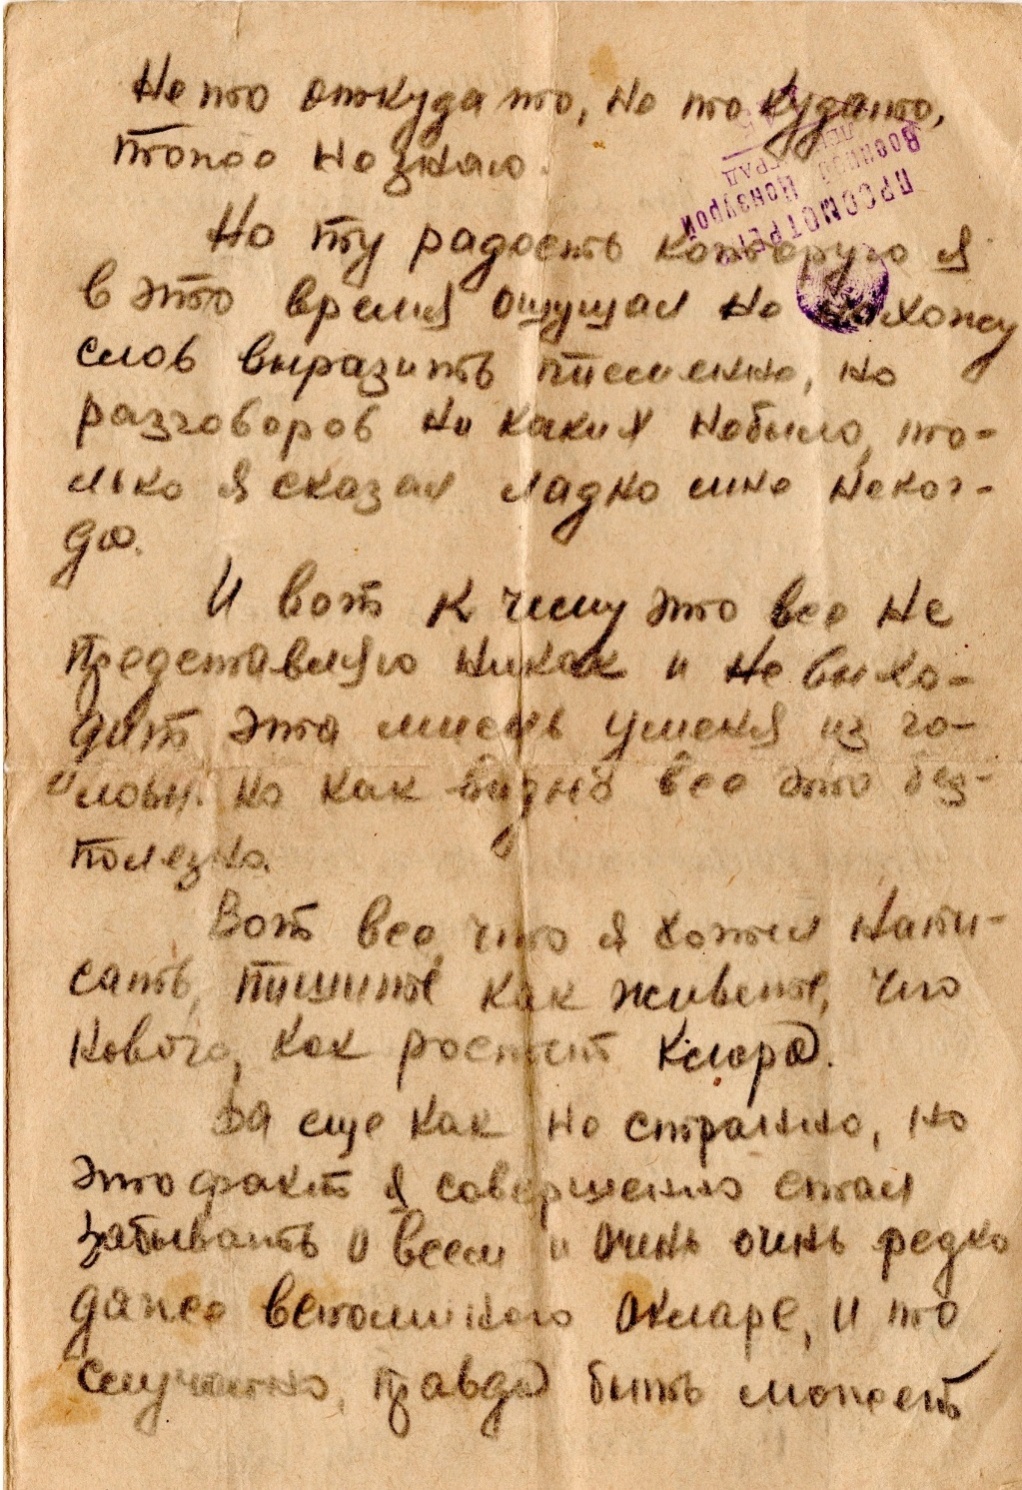 Не то откуда то, не то кудато,
тоже незнаю.
Но ту радость которую я
в это время ощущал не нахожу
слов выразить писменно, но
разговоров ни каких небыло, то-
лько я сказал ладно мне неког-
да.
И вот к чему это все не
представляю никак и не выхо-
дит эта мысль уменя из го-
ловы. но как видно все это без-
полезно.
Вот все, что я хотел напи-
сать, пишите как живете, что
нового, как ростет Клара.
Да еще как не странно, но
это факт я совершенно стал
забывать о всем и очень очень редко
даже вспоминаю о Кларе, и то
случайно, правда быть может
ПРОСМОТРЕНО
Военной Цензурой
ЛЕНИНГРАД